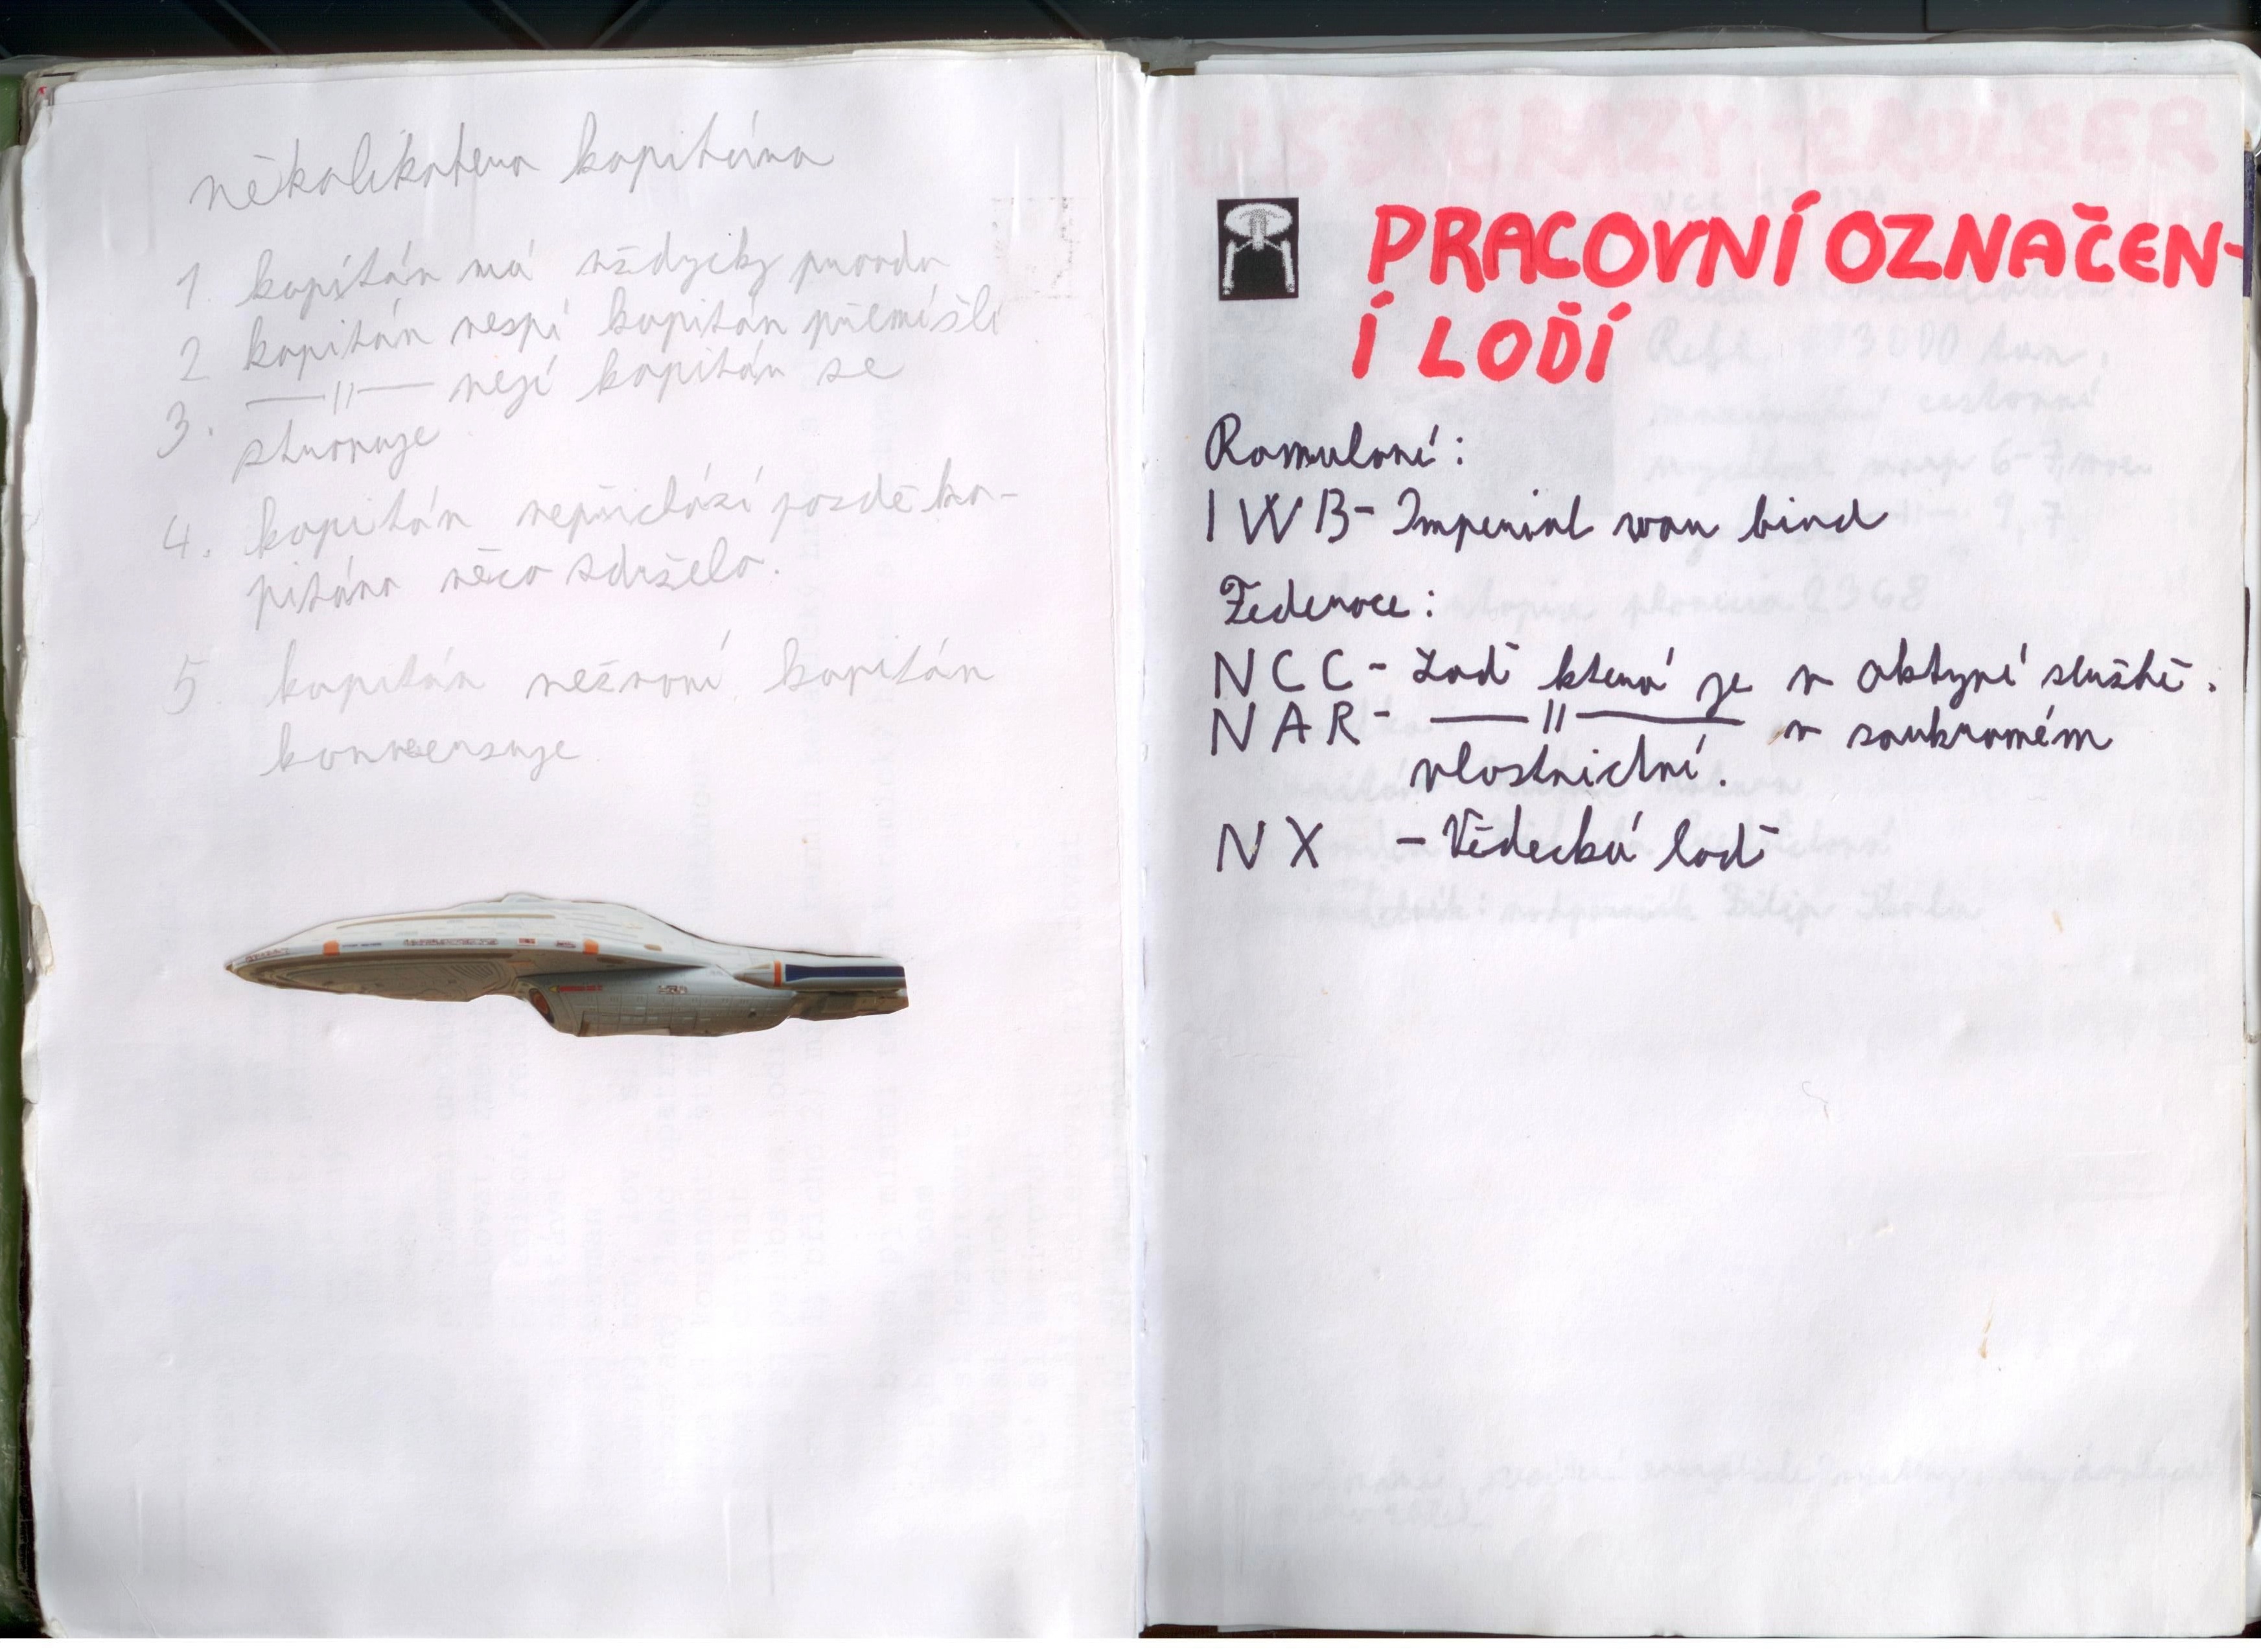 několikatera kapitána
1. kapitán má vždycky pravdu
2 kapitán nespí kapitán přemíšlí
3. —〃— nejí kapitán se
stravuje
4. kapitán nepřichází pozdě ka-
pitána něco zdrželo.
5 kapitán nežvaní kapitán
konverzuje
PRACOVNÍ OZNAČEN-
Í LODÍ
Romulani:
IWB- Imperial war bird
Federace:
NCC- Lodě která je v aktyví službě.
NAR- —〃— v soukromém
vlastnictví.
NX - Vědecká lodě